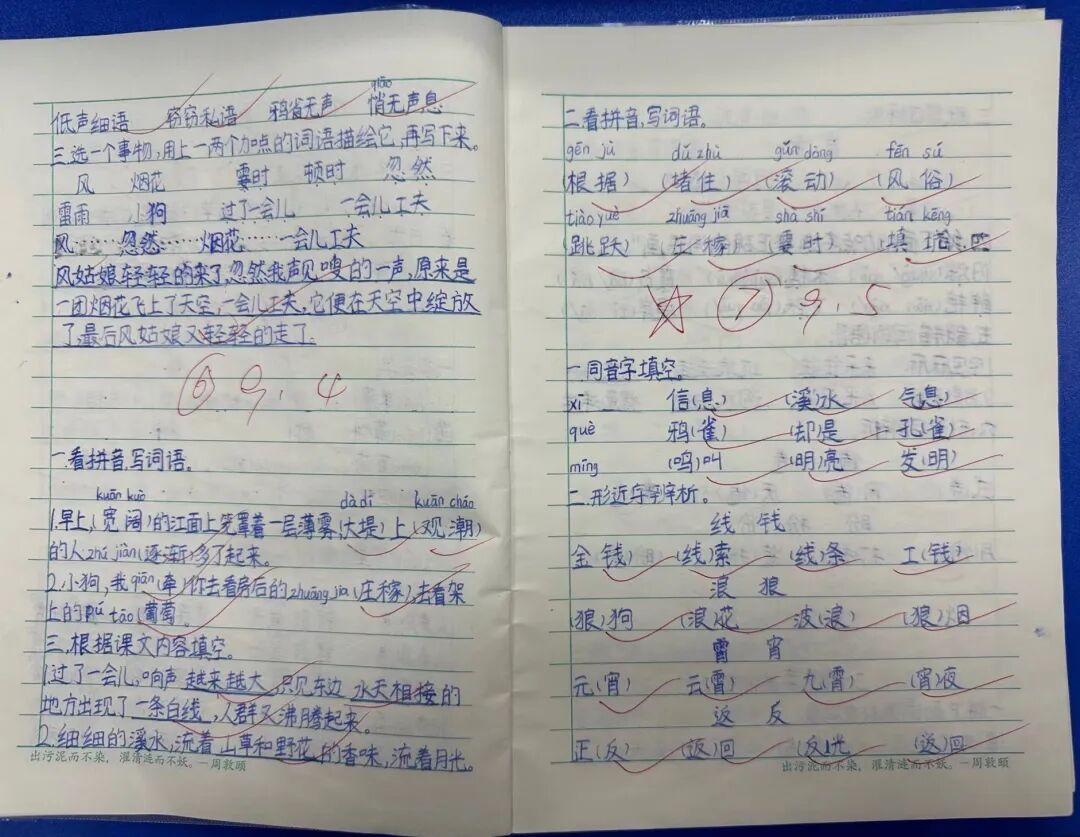 qiāo
低声细语 窃窃私语 鸦雀无声 悄无声息
三.选一个事物,用上一两个加点的词语描绘它,再写下来。
风 烟花 霎时 顿时 忽然
雷雨 小狗 过了一会儿 一会儿工夫
风 忽然 烟花 一会儿工夫
风姑娘轻轻的来了,忽然我声见嗖的一声,原来是
一团烟花飞上了天空,一会儿工夫,它便在天空中绽放
了.最后风姑娘又轻轻的走了.
⑥ 9.4
一.看拼音,写词语。
kuān kuò dà dī kuān cháo
1.早上,(宽阔)的江面上笼罩着一层薄雾,(大堤)上(观潮)
的人zhú jiàn(逐渐)多了起来。
2.小狗,我qiān(牵)你去看房后的zhuāng jia(庄稼),去看架
上的pú táo(葡萄)。
三.根据课文内容填空。
1.过了一会儿,响声越来越大,只见东边水天相接的
地方出现了一条白线,人群又沸腾起来。
2.细细的溪水,流着山草和野花的香味,流着月光。
出污泥而不染,濯清涟而不妖。—周敦颐
二.看拼音,写词语。
gēn jù dǔ zhù gǔn dòng fēn sú
(根据) (堵住) (滚动) (风俗)
tiào yuè zhuāng jiā shà shí tián kēng
(跳跃) 庄稼 (霎时) 填
⑦ 9.5
一.同音字填空。
xī 信(息) (溪)水 气(息)
què 鸦(雀) (却)是 孔(雀)
míng (鸣)叫 (明)亮 发(明)
二.形近字字析。
线 钱
金(钱) (线)索 (线)条 工(钱)
浪 狼
(狼)狗 (浪)花 波(浪) (狼)烟
霄 宵
元(宵) 云(霄) 九(霄) (宵)夜
返 反
正(反) (返)回 (反)光 (返)回
出污泥而不染,濯清涟而不妖。—周敦颐